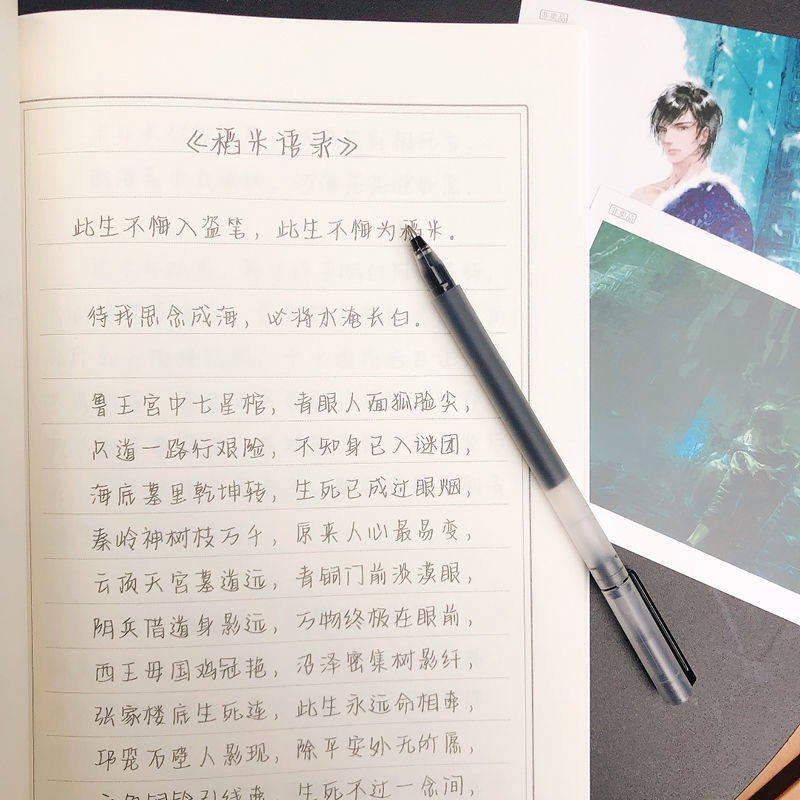 非卖品
《稻米语录》
此生不悔入盗笔，此生不悔为稻米。
待我思念成海，必将水淹长白。
鲁王宫中七星棺，青眼人面狐脸尖，
只道一路行艰险，不知身已入谜团，
海底墓里乾坤转，生死已成过眼烟，
秦岭神树枝万千，原来人心最易变，
云顶天宫墓道远，青铜门前淡漠眼，
阴兵借道身影远，万物终极在眼前，
西王母国鸡冠艳，沼泽密集树影纤，
张家楼底生死连，此生永远命相牵，
邛笼石壁人影现，除平安外无所愿，
六角铜铃引线牵，生死不过一念间，
非卖品